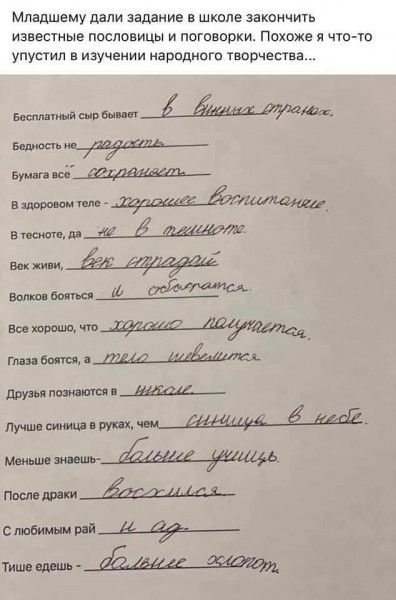 Младшему дали задание в школе закончить
известные пословицы и поговорки. Похоже я что-то
упустил в изучении народного творчества...
Бесплатный сыр бывает в винных странах.
Бедность не радость
Бумага всё сохраняет.
В здоровом теле - хорошее воспитание.
В тесноте, да не в темноте.
Век живи, век страдай
Волков бояться и обосратся.
Все хорошо, что хорошо получается.
Глаза боятся, а тело шевелится.
Друзья познаются в школе.
Лучше синица в руках, чем синница в небе.
Меньше знаешь- больше учишь.
После драки восхился.
С любимым рай и ад.
Тише едешь - больше хлопот.